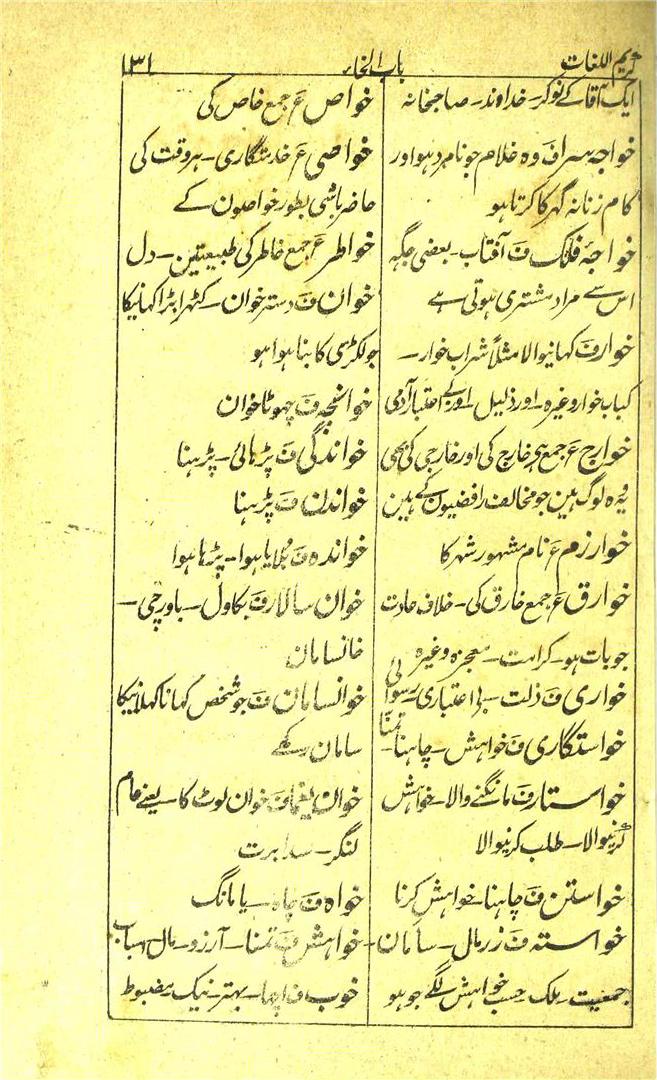 کریم اللغات
باب الخاء
۱۳۱
ایک آقا کے نوکر۔ خداوند۔ صاحبخانہ
خواجہ سرا ف وہ غلام جو نامرد ہو اور
کام زنانہ گھر کا کرتا ہو
خواجۂ فلک ف آفتاب۔ بعضی جگہ
اس سے مراد مشتری ہوتی ہے
خوار ف کہانیوالا مثلاً شراب خوار۔
کباب خوار وغیرہ۔ اور ذلیل اور بے اعتبار آدمی
خوارج ع جمع ہے خارج کی اور خارجی کی بھی
یہ وہ لوگ ہین جو مخالف رافضیون کے ہین
خوارزم ع نام مشہور شہر کا
خوارق ع جمع خارق کی۔ خلاف عادت
جو بات ہو۔ کرامت۔ معجزہ وغیرہ
خواری ف ذلت۔ بے اعتباری۔ رسوائی
خواستگاری ف خواہش۔ چاہنا۔ تمنا
خواستار ف مانگنے والا۔ خواہش
کرنیوالا۔ طلب کرنیوالا
خواستن ف چاہنا۔ خواہش کرنا
خواستہ ف زر مال۔ سامان۔
جمعیت۔ ملک۔ حسب خواہش لگے جو ہو
خواص ع جمع خاص کی
خواصی ع خدمتگاری۔ ہر وقت کی
حاضر باشی بطور خواصون کے
خواطر ع جمع خاطر کی طبیعتین۔ دل
خوان ف دسترخوان۔ کٹہرا بڑا کہانیکا
جو لکڑی کا بنا ہوا ہو
خوانچہ ف چھوٹا خوان
خواندگی ف پڑہائی۔ پڑہنا
خواندن ف پڑہنا
خواندہ ف بلایا ہوا۔ پڑہا ہوا
خوان سالار ف بکاول۔ باورچی۔
خانسامان
خوانسامان ف جو شخص کہانا کہلانیکا
سامان رکھے
خوان یغما ف خوان لوٹ کا یعنے عام
لنگر۔ سدابرت
خواہ ف چاہ۔ یا مانگ
خواہش ف تمنا۔ آرزو۔ مال اسباب
خوب ف اچہا۔ بہتر۔ نیک مضبوط